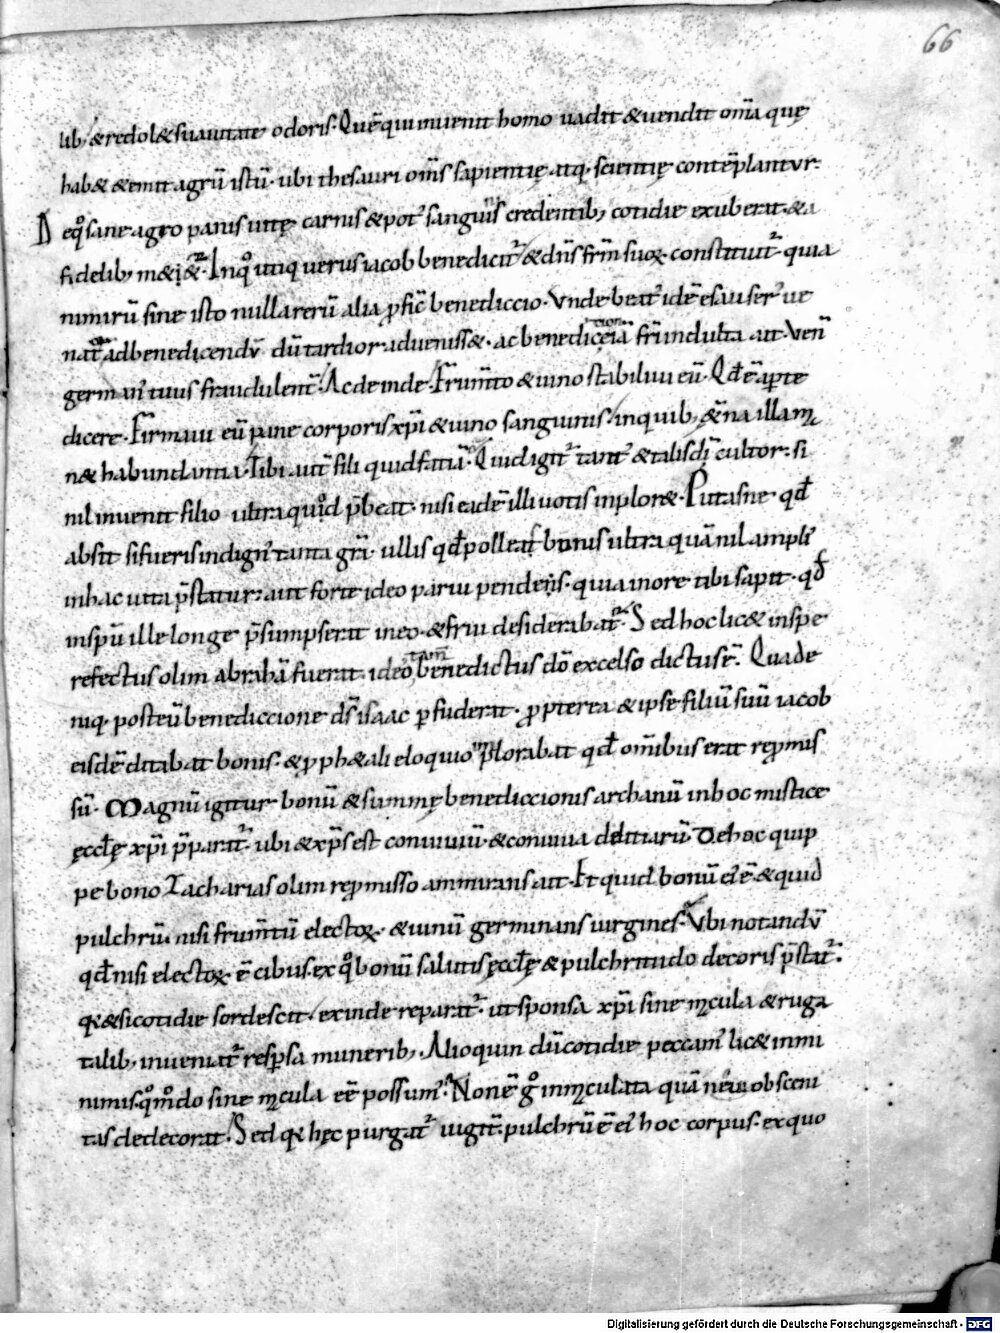 66
lib; & redol& suauitate odoris. Quē qui inuenit homo uadit & uendit om̄a quę
hab& & emit agrū istū. ubi thesauri om̄s sapientię atq. scientię contēplantur.
D eq̊ sane agro panis uitę carnis & pot' sanguinis credentib; cotidie exuberat. & a
fidelib; m&it&ur. In q̊ utiq uerus iacob benedicit᷑ & dn̄s fr̄m suoꝝ constituit᷑ quia
nimirū sine isto nulla rerū alia ꝓfic̄ benediccio. Vnde beat' idē esau ser' ue
nat̄ ad benedicendū dū tardior aduenisset. ac benedictionē frī indulta ait. Ven̄
german' tuus fraudulent̄. Ac deinde. Frum̄to & uino stabiliui eū. Qd̄ ē aꝑte
dicere. Firmaui eū pane corporis xp̄i & uino sanguinis. in quib; ēna illam
n& habundantia. Tibi aut̄ fili quid faciā. Quid igit᷑ tant' & talis dī cultor. si
nil inuenit filio ultra quod p̄beat. nisi eadē illi uotis inplor&. Putasne qd̄
absit si fueris indign' tanta grā. ullis qd̄ polleat bonis ultra quā nil ampli'
in hac uita p̄statur. aut forte ideo parui pendens. quia in ore tibi sapit. qd̄
in spū ille longe p̄sumpserat in eo. & frui desiderabat᷑. Sed hoc lic& in spe
refectus olim abrahā fuerat. ideo tam̄ benedictus dō excelso dictus ē. Qua de
niq. post eū benediccione ds̄ isaac ꝑfuderat. ꝓpterea & ipse filiū suū iacob
eisdē ditabat bonis. & ꝓph&ali eloquio p̄lorabat qd̄ om̄ibus erat reꝓmis
sū. Magnū igitur bonū & summę benediccionis archanū in hoc mistice
ęccłę xp̄i p̄parat᷑. ubi & xp̄s est conuiuiū & conuiua delitiarū. De hoc quip
pe bono Zacharias olim reꝓmisso ammirans ait. Et quid bonū ei' ē & quid
pulchrū. nisi frum̄tū electoꝝ. & uinū germinans uirgines. Vbi notandū
qd̄ nisi electoꝝ ē cibus. ex q̊ bonū salutis ęccłę & pulchritudo decoris p̄stat᷑.
q& si cotidie sordescit. exinde reparat᷑. ut sponsa xp̄i sine macula & ruga
talib; inueniat᷑ resp̄sa munerib; Alioquin dū cotidie peccam' lic& in mi
nimis. q̊m̊do sine macula eē possum'. Non ē g̊ inmaculata quā obsceni
tas dedecorat. Sed q hęc purgat᷑ uigit̄. pulchrū ē ei' hoc corpus. ex quo
Digitalisierung gefördert durch die Deutsche Forschungsgemeinschaft - DFG